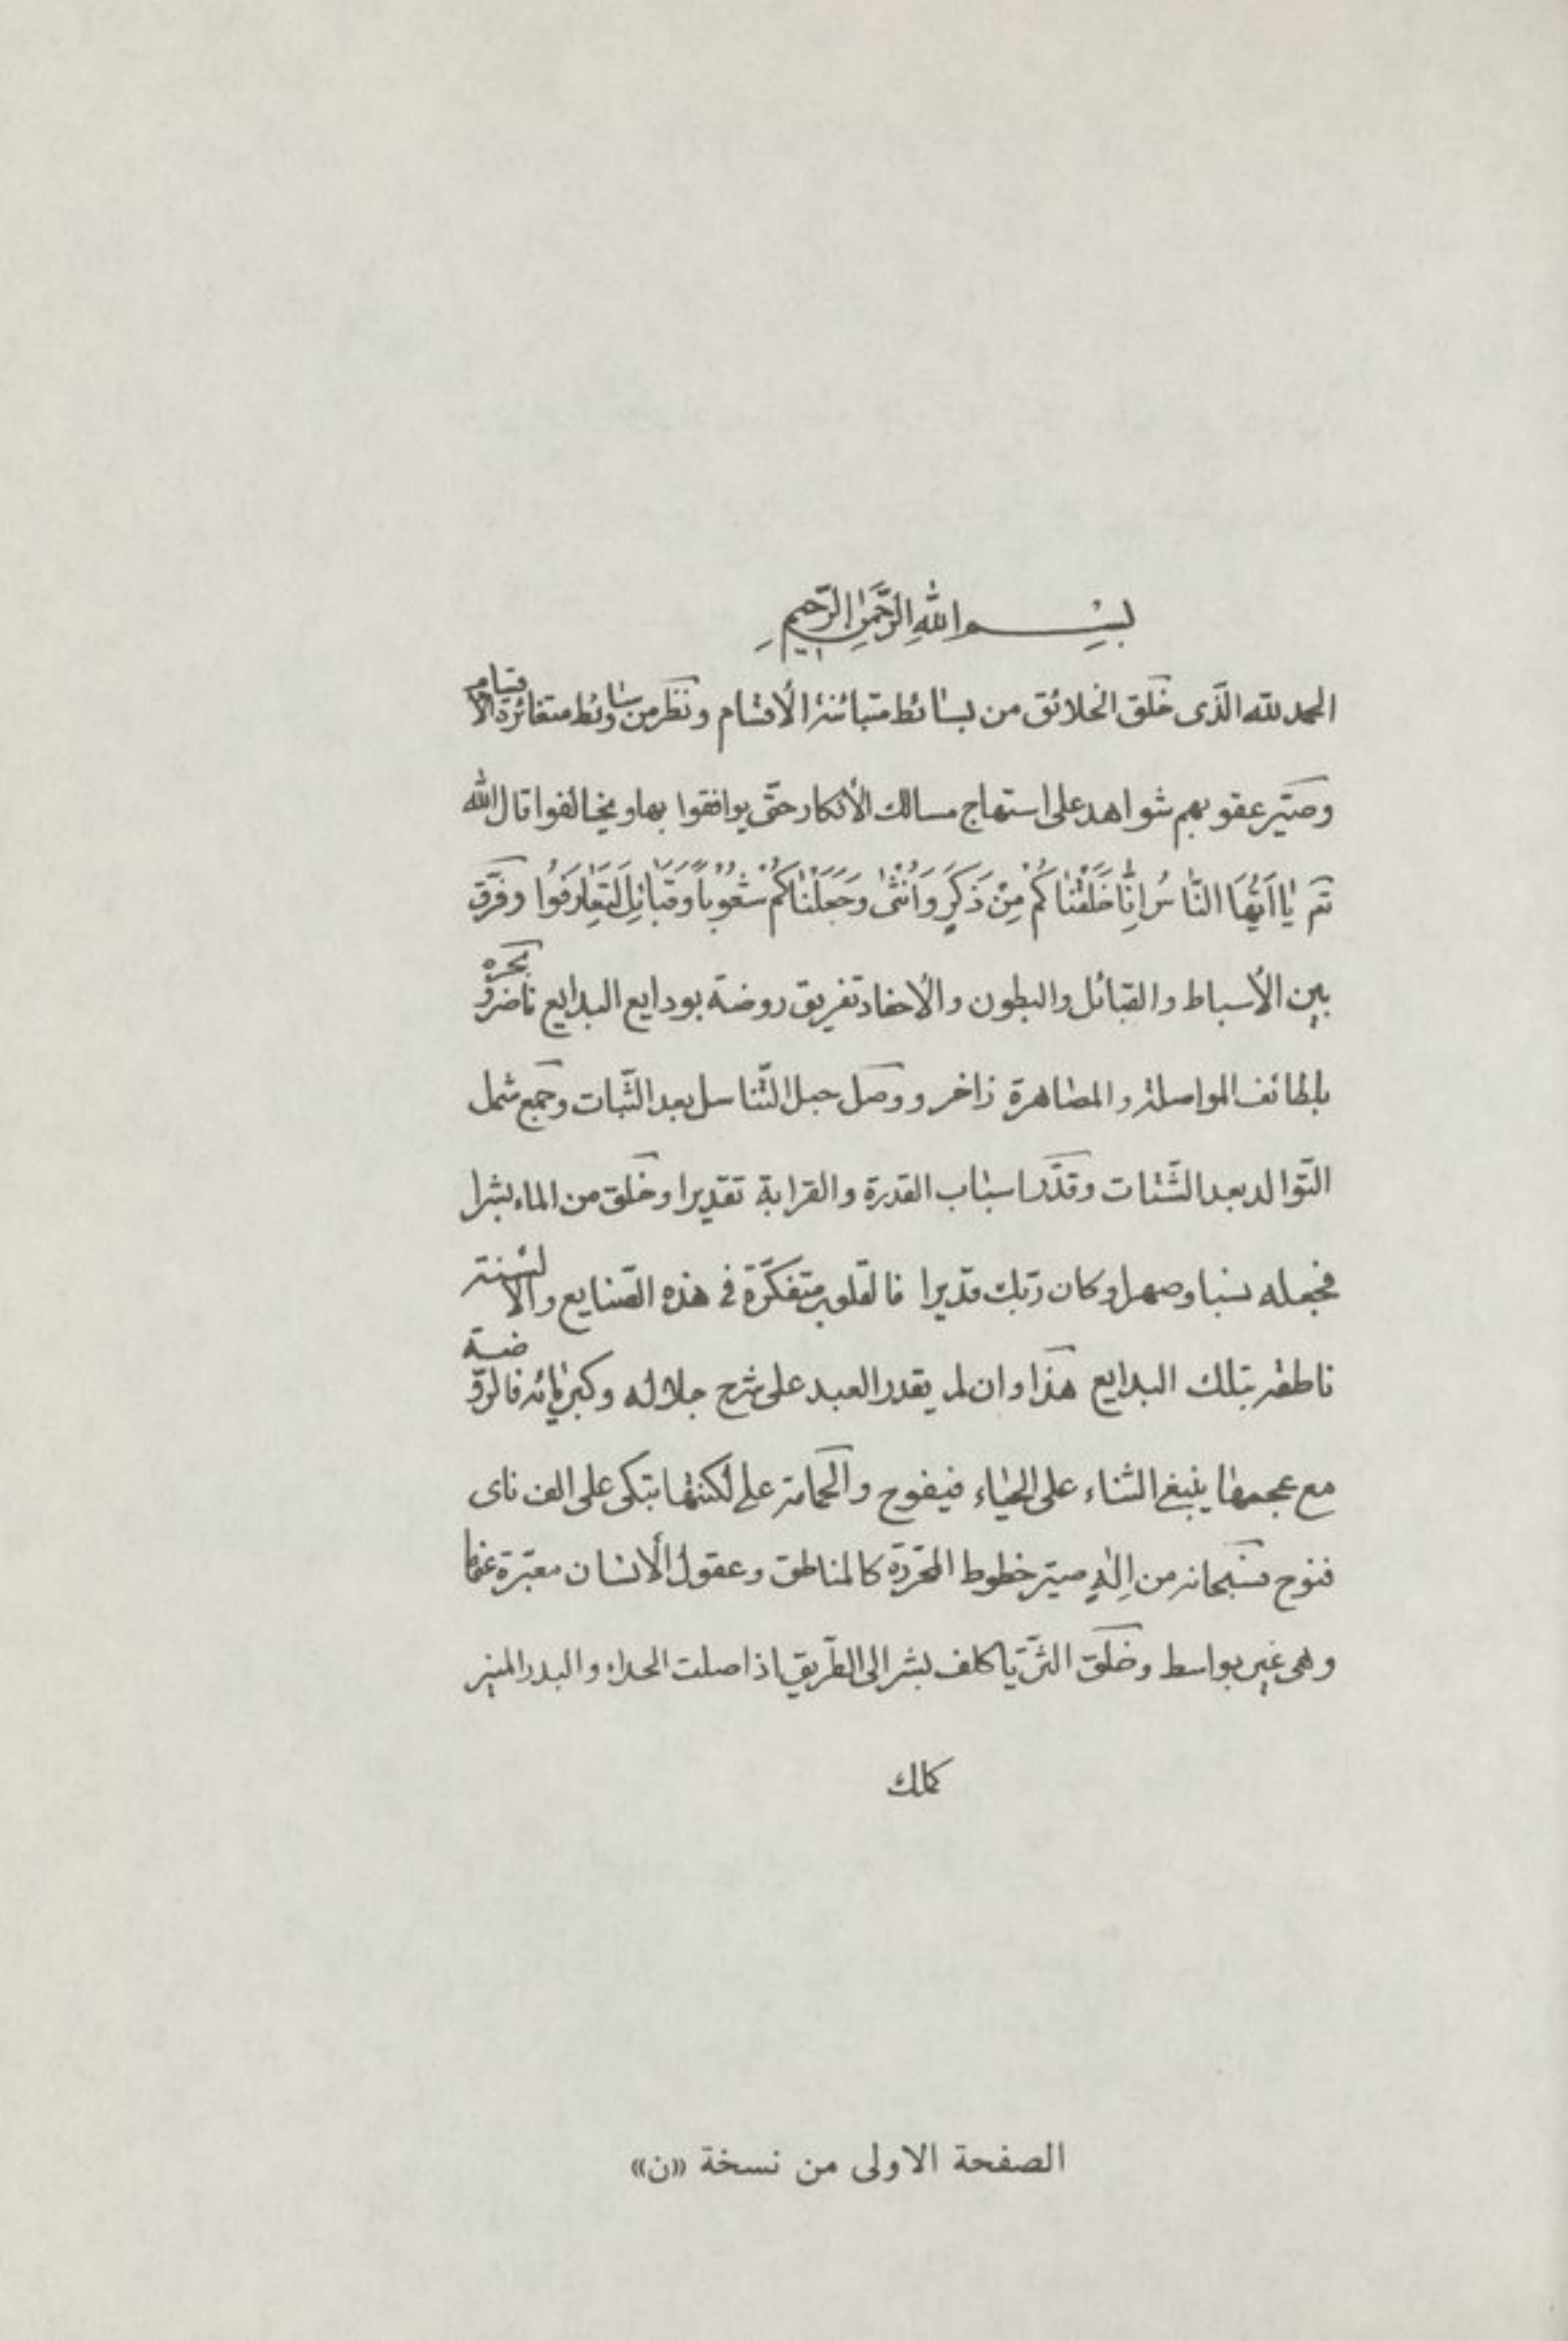 بِسْمِ اللهِ الرَّحْمٰنِ الرَّحِيمِ
الحمد للّه الّذى خلق الخلائق من بسائط متبائنة الأقسام ونظر من وسائط متغائرة الأقيام
وصيّر عقولهم شواهد على استهاج مسالك الأنكار حتّى يوافقوا بها ويخالفوا قال الله
تع يٰا اَيُّهَا النّٰاسُ اِنّٰا خَلَقْنٰاكُمْ مِنْ ذَكَرٍ وَاُنْثىٰ وَجَعَلْنٰاكُمْ شُعُوباً وَقَبٰائِلَ لِتَعٰارَفُوا وفرّق
بين الأسباط والقبائل والبطون والأحفاد تفريق روضة بودايع البدايع ناضرة وبحره
بلطائف المواصلة والمصاهرة زاخر ووصل حبل التّناسل بعد الثّبات وجمع شمل
التّوالد بعد الشّتات وقدّر اسباب القدرة والقرابة تقديرا وخلق من الماء بشرا
فجعله نسبا وصهرا وكان ربّك قديرا فالقلوب متفكّرة فى هذه الصّنايع والألسنة
ناطقة بتلك البدايع هذا وان لم يقدر العبد على شرح جلاله وكبريائه فالروضة
مع عجمها ينبغ الثناء على الحياء فيفوح والحمامة على لكنتها تبكى على الف ناى
فنوح فسبحانه من اِلٰهٍ صيّر خطوط المجرّدة كالمناطق وعقول الأنسان معبّرة عنها
وهى غير بواسط وخلق الثّريّا كلف بشر الى الطّريق اذا صلت الحداء والبدر المنير
كملك
الصفحة الاولى من نسخة «ن»